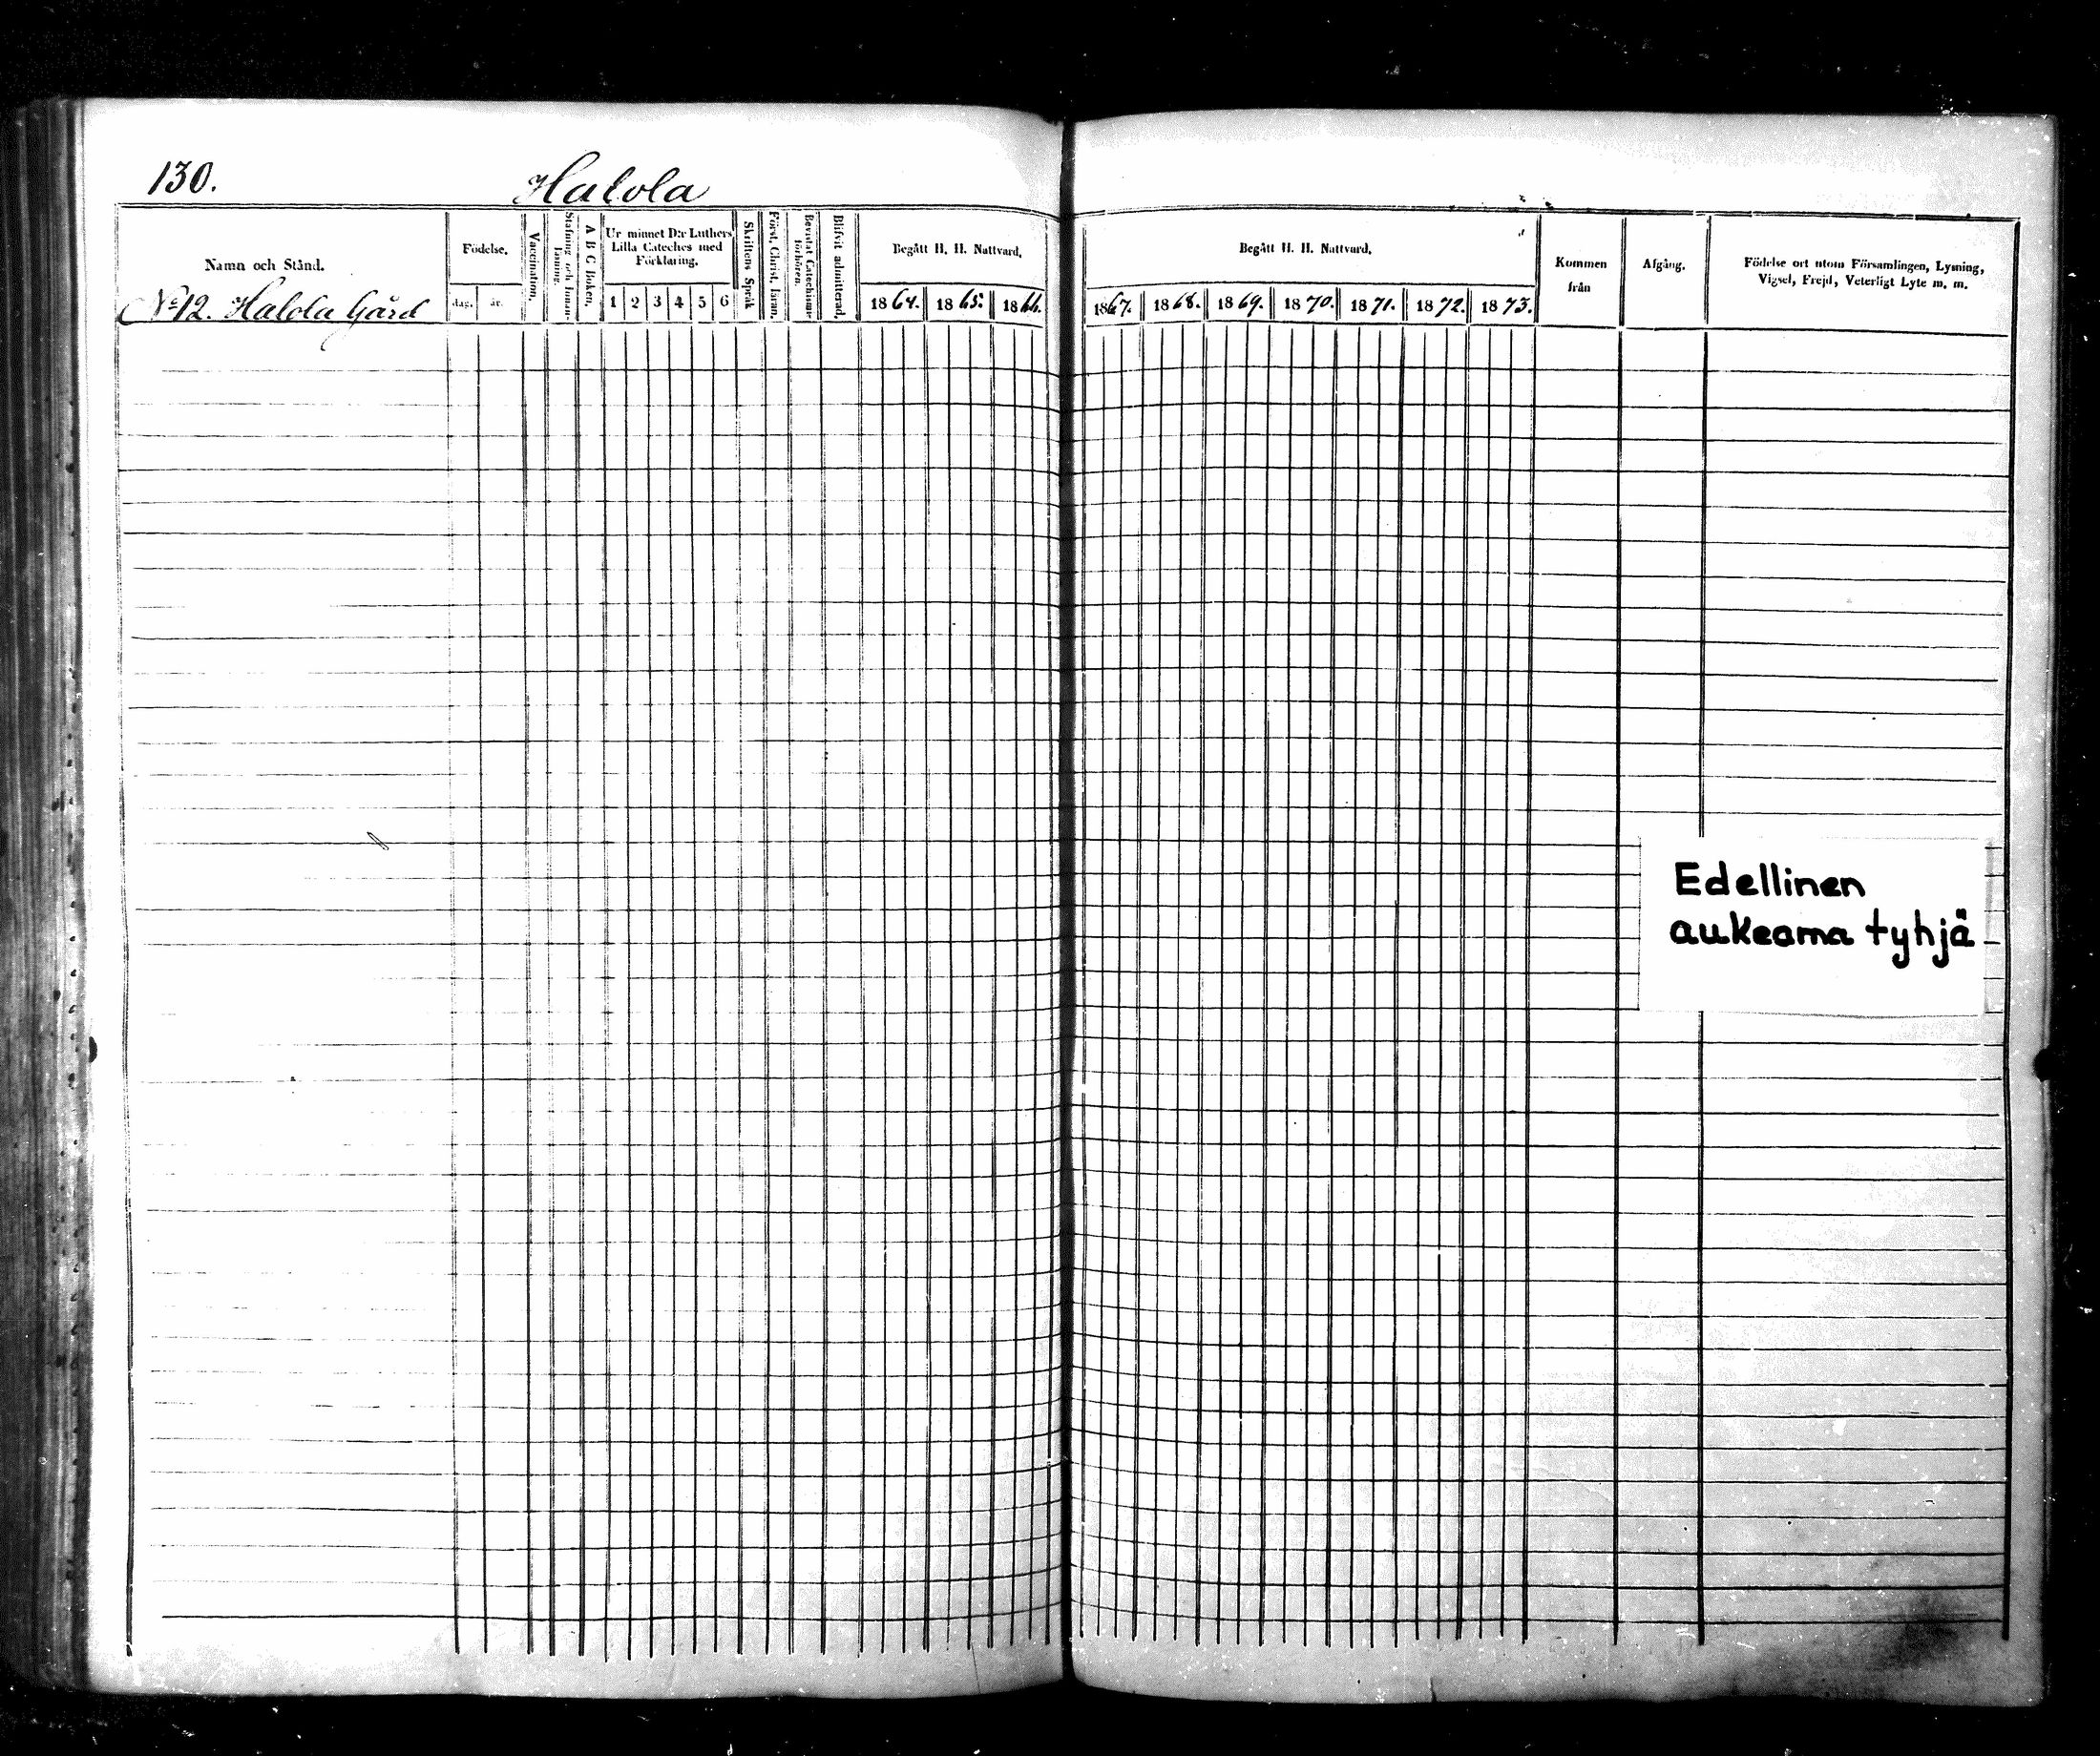 130.
Halola
Namn och Stånd.
Födelse.
dag.
år.
Vaccination.
Stafning och Innan-
läsning.
A B C Boken.
Ur minnet D:r Luthers
Lilla Cateches med
Förklaring.
1 2 3 4 5 6
Skriftens Språk
Först. Christ. läran.
Bevistat Catechismi-
förhören.
Blifvit admitterad.
Begått H. H. Nattvard.
1864. 1865. 1866.
No 12. Halola Gård
Begått H. H. Nattvard.
1867. 1868. 1869. 1870. 1871. 1872. 1873.
Kommen
från
Afgång.
Födelse ort utom Församlingen, Lysning,
Vigsel, Frejd, Veterligt Lyte m. m.
Edellinen
aukeama tyhjä